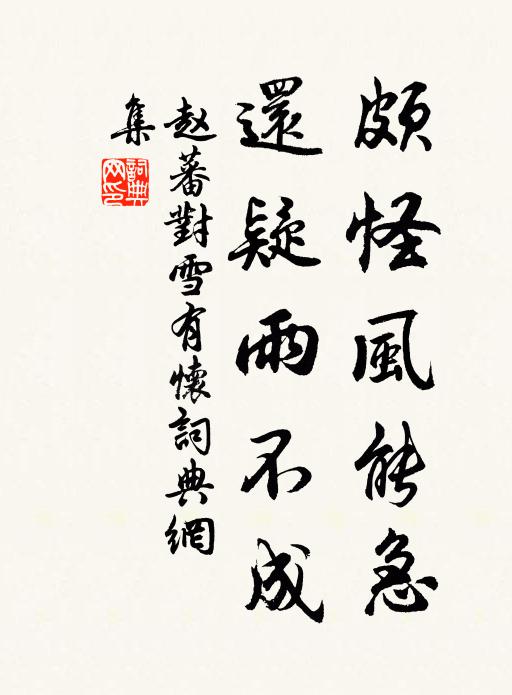 頗怪風能急
還疑雨不成
赵蕃對雪有懷詞典網
集
詞典
网印